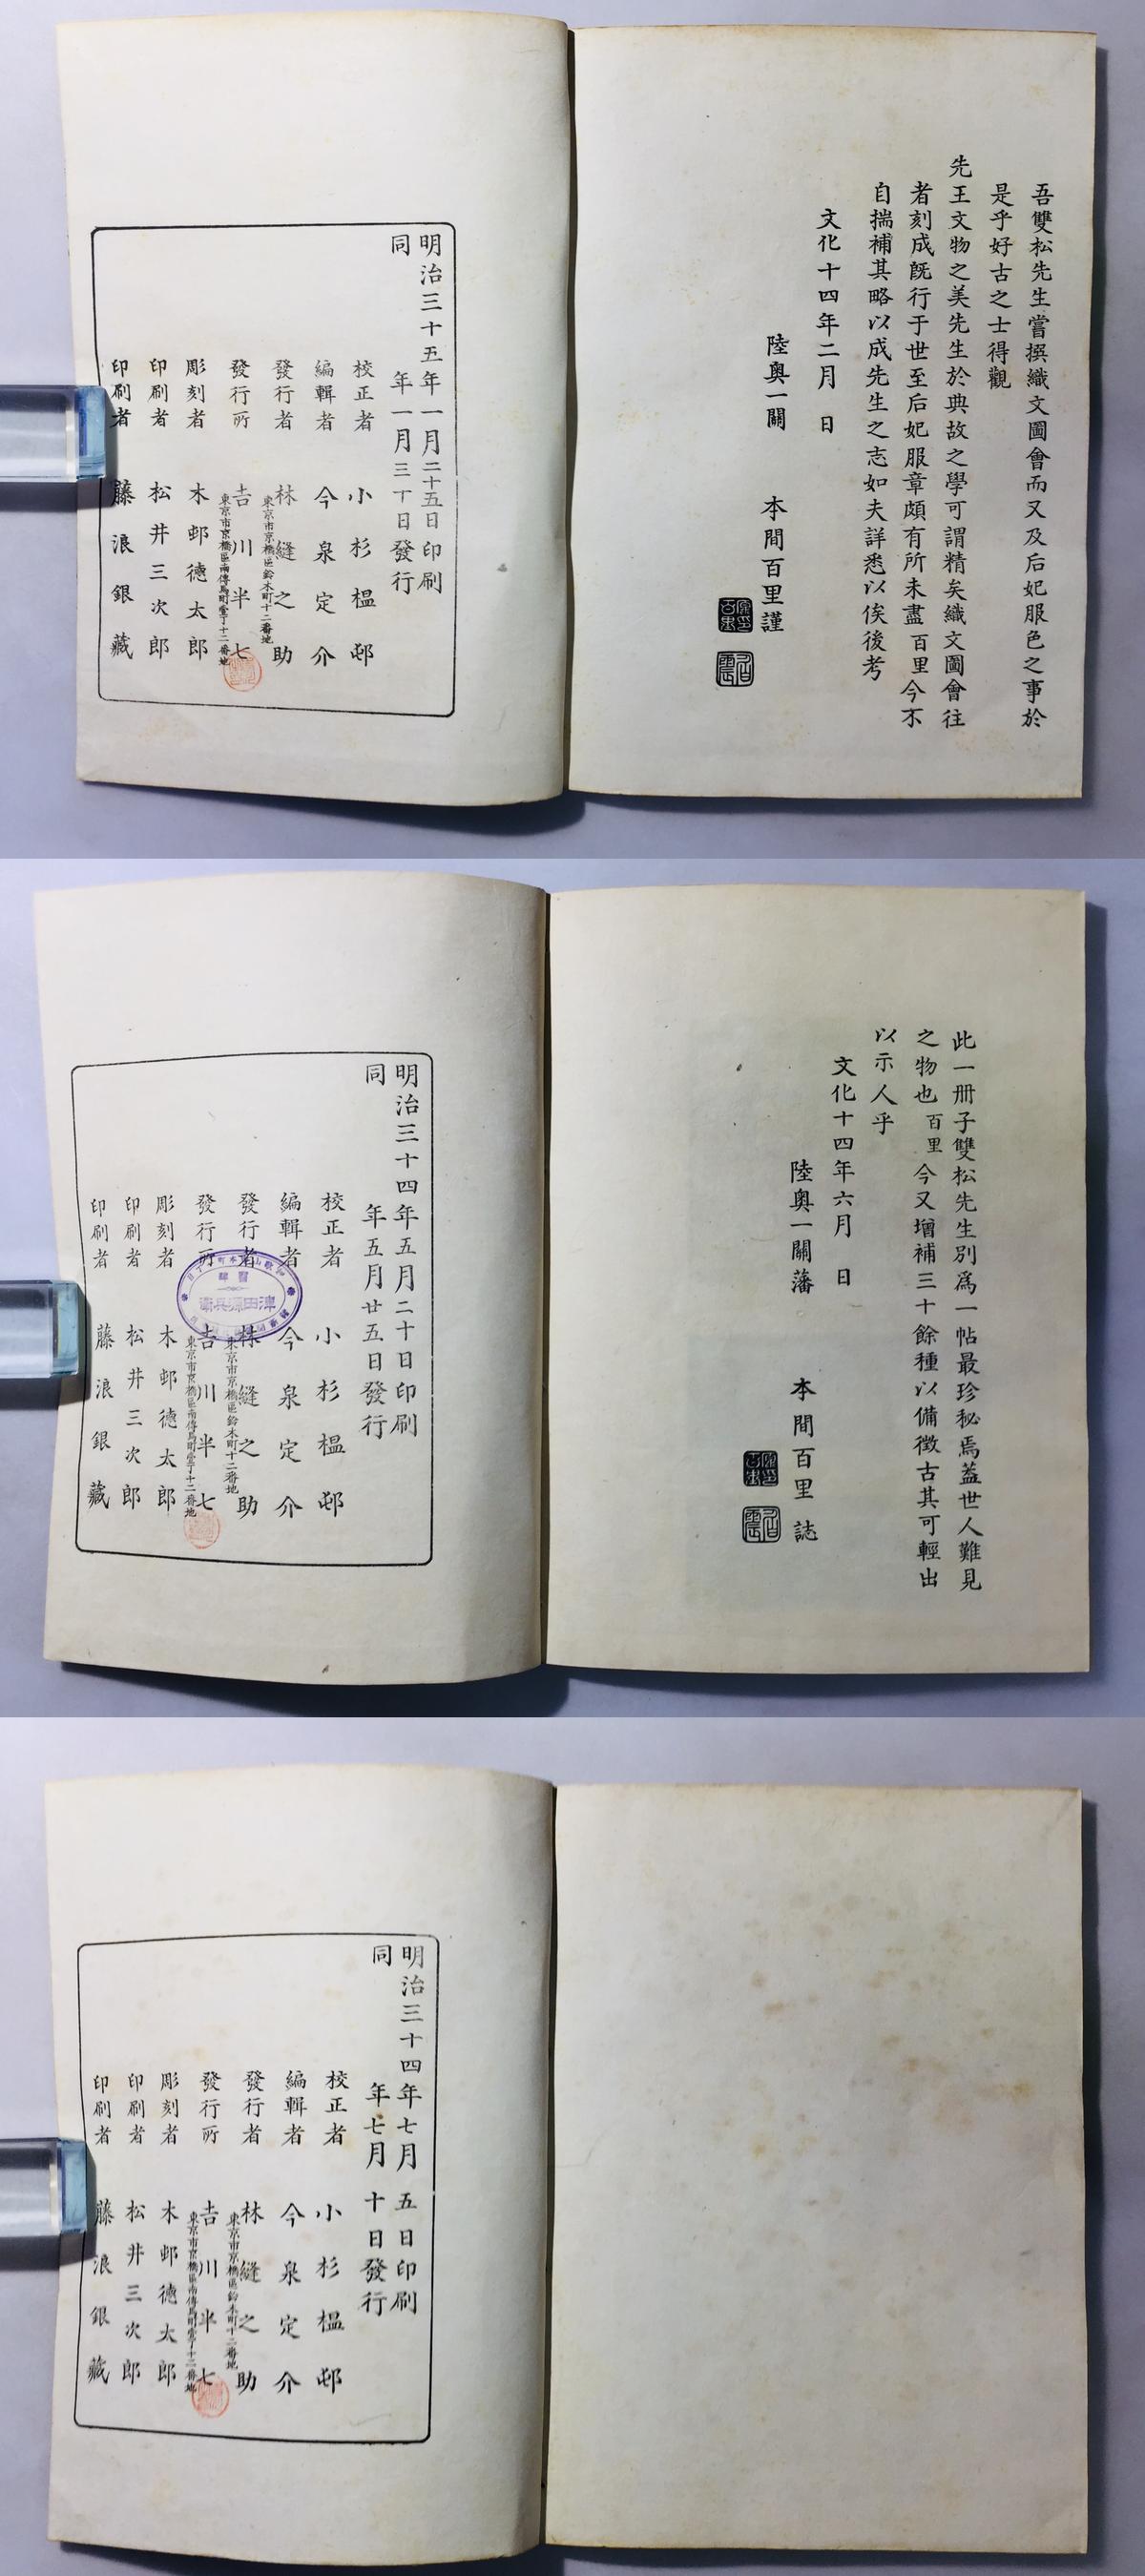 吾雙松先生嘗撰織文圖會而又及后妃服色之事於
是乎好古之士得觀
先王文物之美先生於典故之學可謂精矣織文圖會往
者刻成既行于世至后妃服章頗有所未盡百里今不
自揣補其略以成先生之志如夫詳悉以俟後考
文化十四年二月　日
陸奥一關　本間百里謹
明治三十五年一月二十五日印刷
同　年一月三十日發行
校正者　小杉榲邨
編輯者　今泉定介
發行者　林縫之助
東京市京橋區鈴木町十二番地
發行所　吉川半七
東京市京橋區南傳馬町壹丁十二番地
彫刻者　木邨德太郎
印刷者　松井三次郎
印刷者　藤浪銀藏
此一册子雙松先生別爲一帖最珍秘焉蓋世人難見
之物也百里今又增補三十餘種以備徵古其可輕出
以示人乎
文化十四年六月　日
陸奥一關藩　本間百里誌
明治三十四年五月二十日印刷
同　年五月廿五日發行
校正者　小杉榲邨
編輯者　今泉定介
發行者　林縫之助
東京市京橋區鈴木町十二番地
發行所　吉川半七
東京市京橋區南傳馬町壹丁十二番地
彫刻者　木邨德太郎
印刷者　松井三次郎
印刷者　藤浪銀藏
明治三十四年七月五日印刷
同　年七月十日發行
校正者　小杉榲邨
編輯者　今泉定介
發行者　林縫之助
東京市京橋區鈴木町十二番地
發行所　吉川半七
東京市京橋區南傳馬町壹丁十二番地
彫刻者　木邨德太郎
印刷者　松井三次郎
印刷者　藤浪銀藏